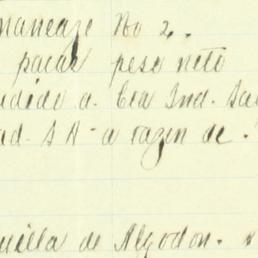 maneaje No 2.
pacas peso neto
dido a. Cia Ind. Sal
ad. S A - a razon de.
uilla de Algodon.